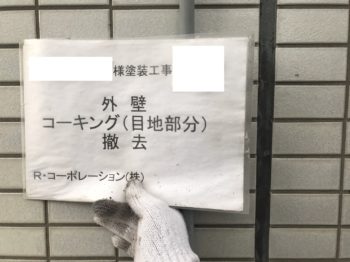 様塗装工事
外壁
コーキング(目地部分)
撤去
R・コーポレーション(株)